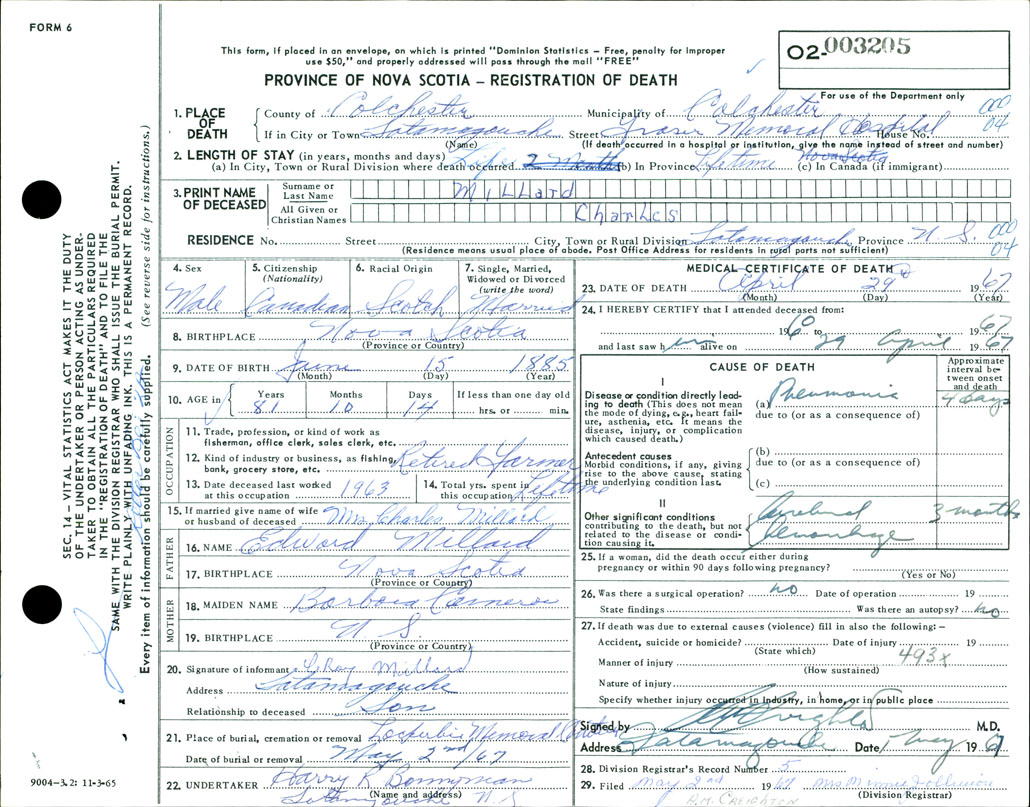 FORM 6
This form, if placed in an envelope, on which is printed "Dominion Statistics – Free, penalty for improper
use $50," and properly addressed will pass through the mail "FREE"
O2-003205
For use of the Department only
PROVINCE OF NOVA SCOTIA – REGISTRATION OF DEATH
1. PLACE OF DEATH
County of Colchester Municipality of Colchester 000
If in City or Town Tatamagouche Street Fraser Memorial Hospital House No. 04
(Name) (If death occurred in a hospital or institution, give the name instead of street and number)
2. LENGTH OF STAY (in years, months and days)
(a) In City, Town or Rural Division where death occurred 2 Months (b) In Province Lifetime (c) In Canada (if immigrant) Nova Scotia
3. PRINT NAME OF DECEASED
Surname or Last Name Millard
All Given or Christian Names Charles
RESIDENCE No. Street City, Town or Rural Division Tatamagouche Province N S. 000 04
(Residence means usual place of abode. Post Office Address for residents in rural parts not sufficient)
4. Sex Male
5. Citizenship (Nationality) Canadian
6. Racial Origin Scotch
7. Single, Married, Widowed or Divorced (write the word) Married
8. BIRTHPLACE Nova Scotia
(Province or Country)
9. DATE OF BIRTH June 15 1885
(Month) (Day) (Year)
10. AGE in Years 81 Months 10 Days 14 If less than one day old hrs. or min.
OCCUPATION
11. Trade, profession, or kind of work as fisherman, office clerk, sales clerk, etc.
12. Kind of industry or business, as fishing, bank, grocery store, etc. Retired Farmer
13. Date deceased last worked at this occupation 1963
14. Total yrs. spent in this occupation Lifetime
15. If married give name of wife or husband of deceased Mrs Charles Millard
FATHER
16. NAME Edward Millard
17. BIRTHPLACE Nova Scotia
(Province or Country)
MOTHER
18. MAIDEN NAME Barbara Cameron
19. BIRTHPLACE N S.
(Province or Country)
20. Signature of informant LeRoy Millard
Address Tatamagouche
Relationship to deceased Son
21. Place of burial, cremation or removal Lockerbie Memorial
Date of burial or removal May 2nd/67
22. UNDERTAKER Harry R Bonnyman
(Name and address)
Tatamagouche N S
MEDICAL CERTIFICATE OF DEATH
23. DATE OF DEATH April 29 1967
(Month) (Day) (Year)
24. I HEREBY CERTIFY that I attended deceased from:
1960 to 29 April 1967
and last saw him alive on 1967
CAUSE OF DEATH
Approximate interval between onset and death
I
Disease or condition directly leading to death (This does not mean the mode of dying, e.g., heart failure, asthenia, etc. It means the disease, injury, or complication which caused death.)
(a) Pneumonia 4 days
due to (or as a consequence of)
Antecedent causes
Morbid conditions, if any, giving rise to the above cause, stating the underlying condition last.
(b)
due to (or as a consequence of)
(c)
II
Other significant conditions contributing to the death, but not related to the disease or condition causing it.
Cerebral Hemorrhage 3 months
25. If a woman, did the death occur either during pregnancy or within 90 days following pregnancy?
(Yes or No)
26. Was there a surgical operation? No Date of operation 19
State findings Was there an autopsy? No
27. If death was due to external causes (violence) fill in also the following:–
Accident, suicide or homicide? Date of injury 19
(State which)
Manner of injury 493x
(How sustained)
Nature of injury
Specify whether injury occurred in industry, in home, or in public place
Signed by M.D.
Address Tatamagouche Date 1 May 1967
28. Division Registrar's Record Number 5
29. Filed May 2nd 1967
(Division Registrar)
R.M. CREIGHTON
SEC. 14 – VITAL STATISTICS ACT MAKES IT THE DUTY
OF THE UNDERTAKER OR PERSON ACTING AS UNDER-
TAKER TO OBTAIN ALL THE PARTICULARS REQUIRED
IN THE "REGISTRATION OF DEATH" AND TO FILE THE
SAME WITH THE DIVISION REGISTRAR WHO SHALL ISSUE THE BURIAL PERMIT.
WRITE PLAINLY WITH UNFADING INK. THIS IS A PERMANENT RECORD.
Every item of information should be carefully supplied. (See reverse side for instructions.)
9004-3.2: 11-3-65